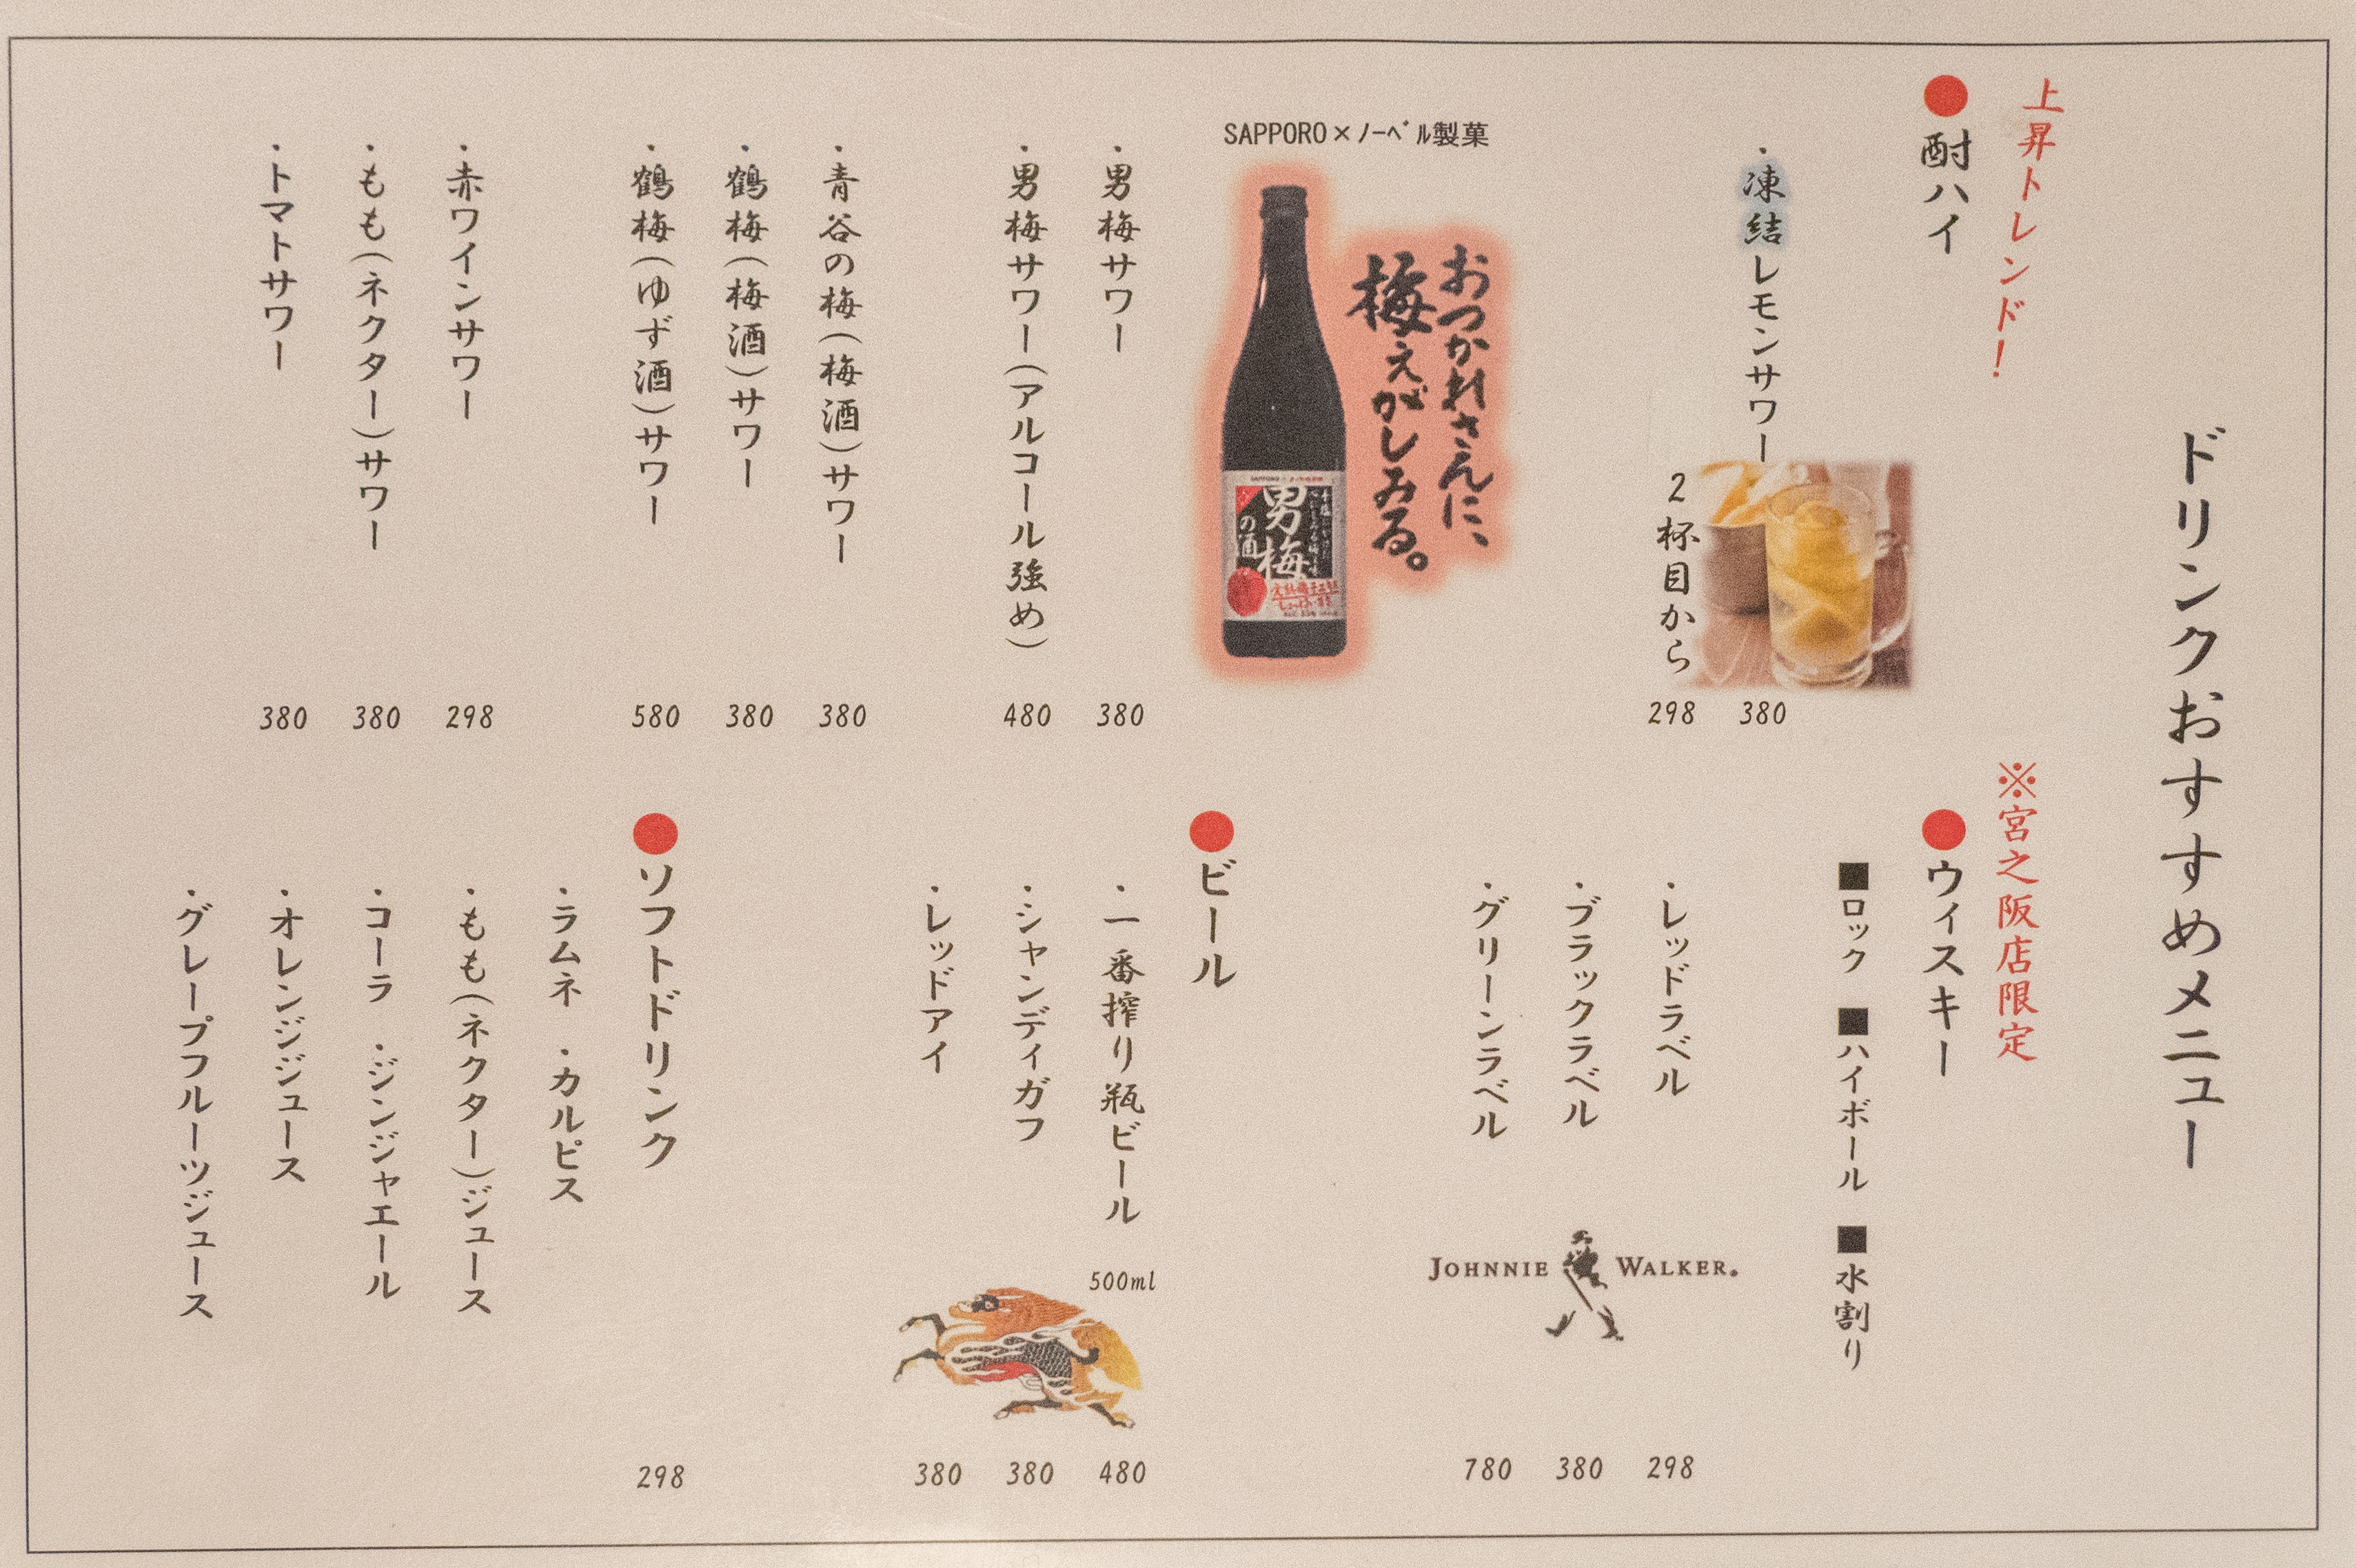 ドリンクおすすめメニュー
上昇トレンド！
●酎ハイ
・凍結レモンサワー 380
2杯目から 298
SAPPORO×ノーベル製菓
おつかれさんに、
梅ぇがしみる。
SAPPORO
男梅
の酒
・男梅サワー 380
・男梅サワー(アルコール強め) 480
・青谷の梅(梅酒)サワー 380
・鶴梅(梅酒)サワー 380
・鶴梅(ゆず酒)サワー 580
・赤ワインサワー 298
・もも(ネクター)サワー 380
・トマトサワー 380
※宮之阪店限定
●ウィスキー
■ロック ■ハイボール ■水割り
・レッドラベル 298
・ブラックラベル 380
・グリーンラベル 780
JOHNNIE WALKER.
●ビール
・一番搾り瓶ビール 500ml 480
・シャンディガフ 380
・レッドアイ 380
●ソフトドリンク 298
・ラムネ ・カルピス
・もも(ネクター)ジュース
・コーラ ・ジンジャエール
・オレンジジュース
・グレープフルーツジュース